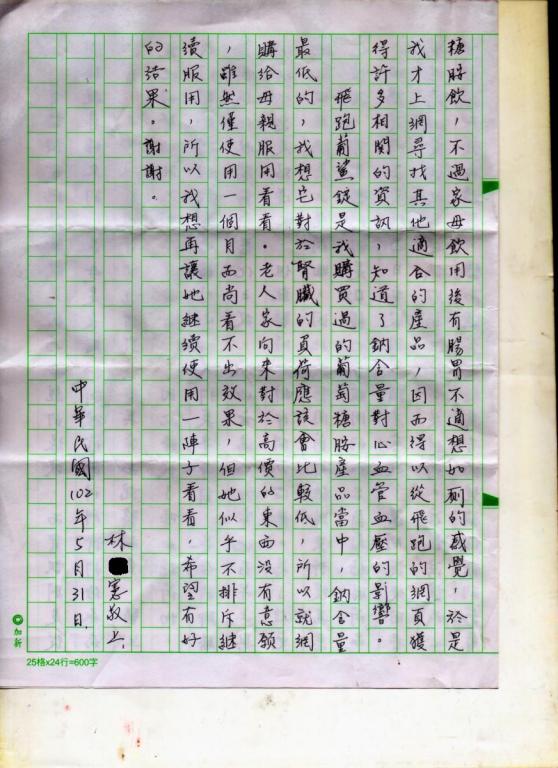 糖胺飲，不過家母飲用後有腸胃不適想如廁的感覺，於是
我才上網尋找其他適合的產品，因而得以從飛跑的網頁獲
得許多相關的資訊，知道了鈉含量對心血管血壓的影響。
飛跑葡鯊錠是我購買過的葡萄糖胺產品當中，鈉含量
最低的，我想它對於腎臟的負荷應該會比較低，所以就網
購給母親服用看看。老人家向來對於高價的東西沒有意願
，雖然僅使用一個月而尚看不出效果，但她似乎不排斥繼
續服用，所以我想再讓她繼續使用一陣子看看，希望有好
的結果。謝謝。
林憲敬上.
中華民國102年5月31日.
加新
25格x24行=600字